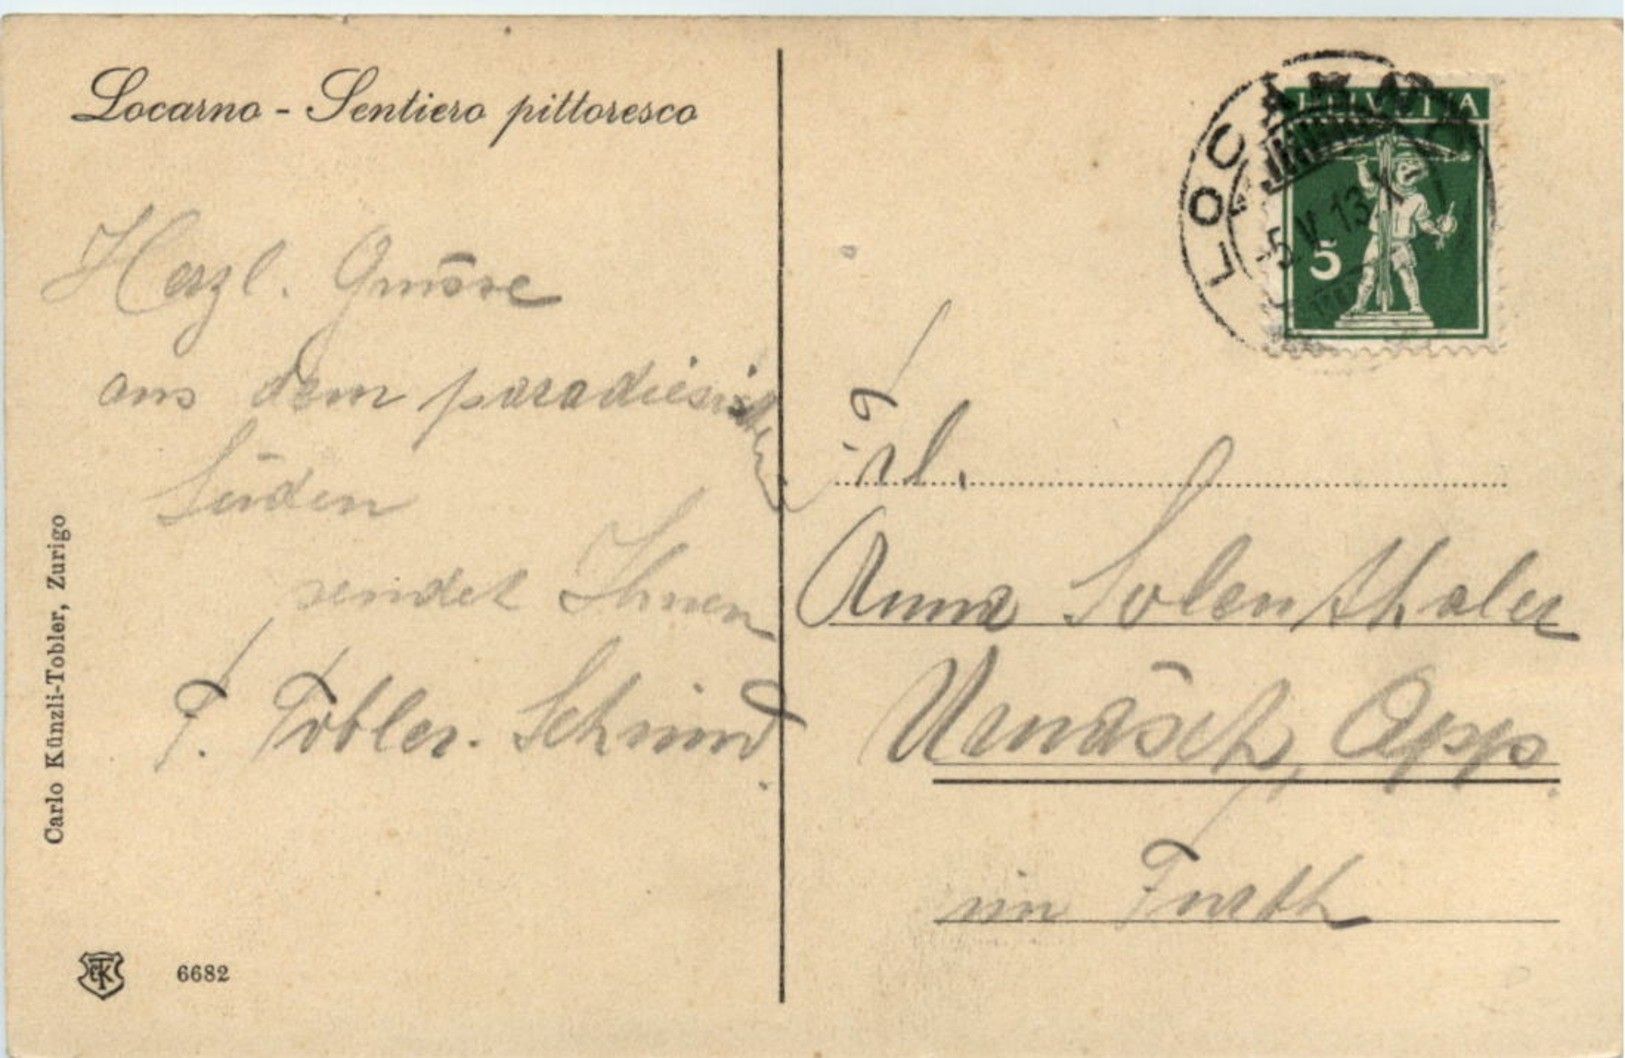 Locarno - Sentiero pittoresco
Herzl. Grüsse
aus dem paradiesischen
Süden
sendet Ihnen
F. Tobler-Schmid.
Carlo Künzli-Tobler, Zurigo
6682
LOCARNO
-5.V.13-X
HELVETIA
5
Frl.
Anna Solenthaler
Urnäsch, App.
im Furth